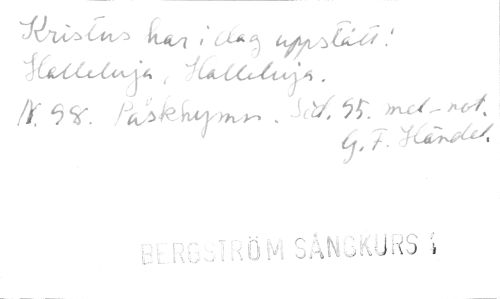 Kristus har i dag uppstått!
Halleluja, Halleluja.
N. 98. Påskhymn. Sid. 95. mel-not.
G. F. Händel.
BERGSTRÖM SÅNGKURS 1